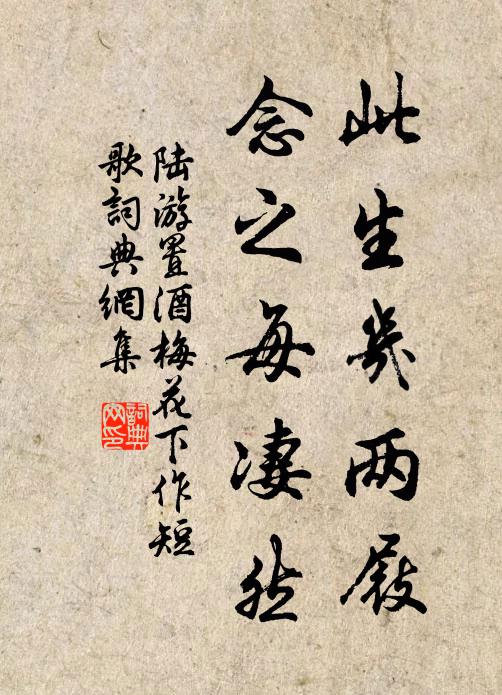 此生几两屐
念之每凄然
陆游置酒梅花下作短
歌詞典網集
詞典
网印